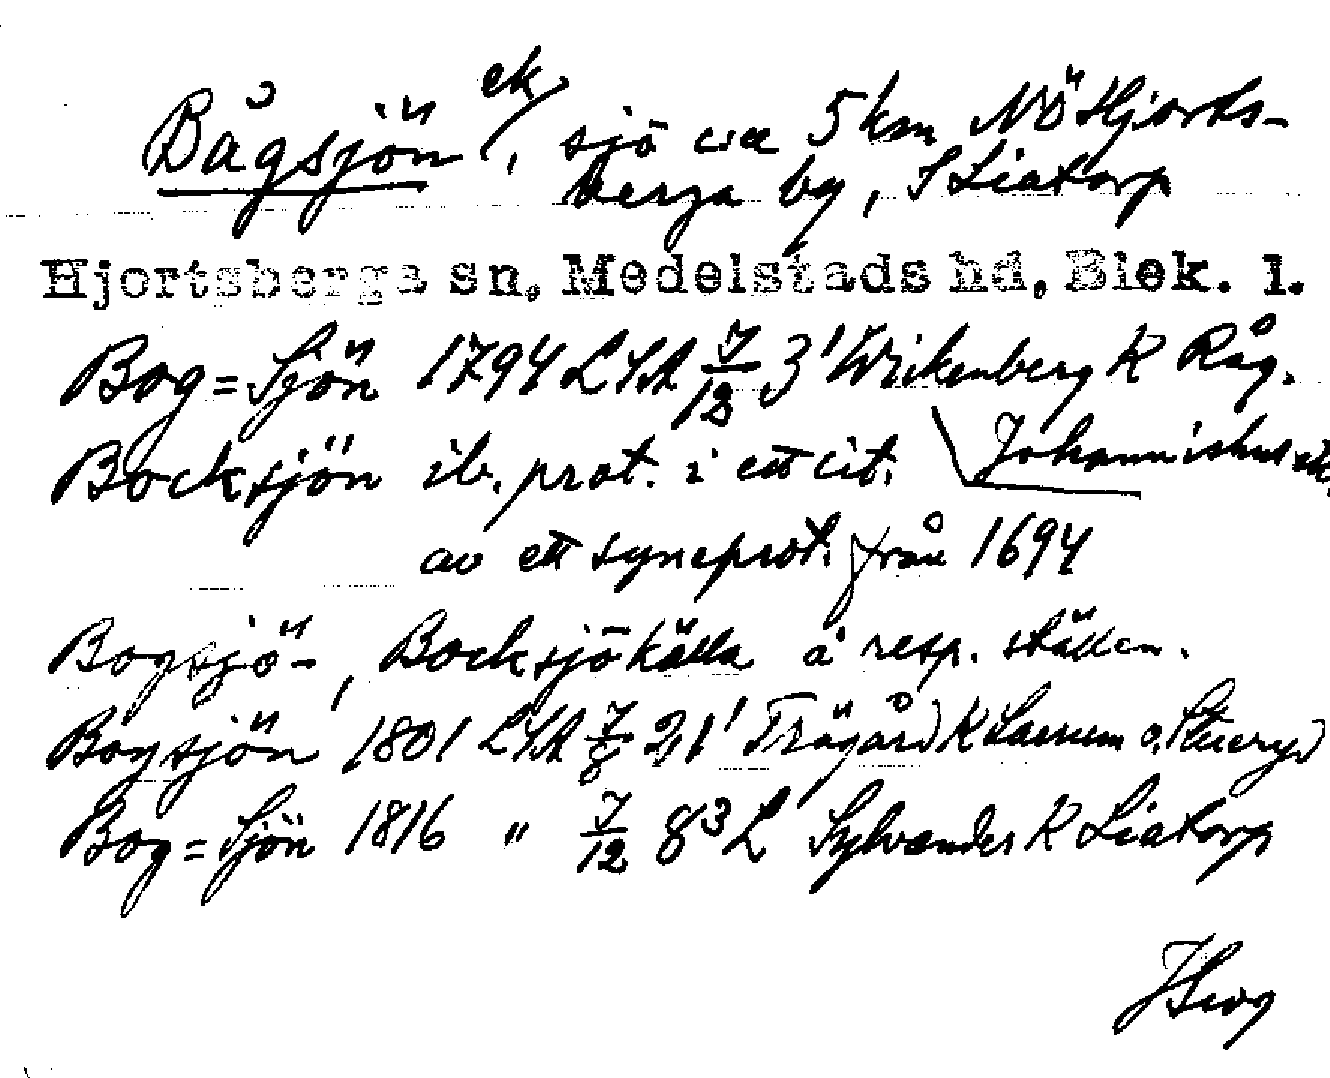 Bågsjön ek, sjö ca 5 km NÖ Hjorts-
berga by, S Liatorp
Hjortsberga sn, Medelstads hd, Blek. l.
Bog=Sjön 1794 LSA 7/12 3¹ Wickenberg K Råg.
Bocksjön ib. prot. i ett cit. \ Johannishus etc.
av ett syneprot. från 1694
Bogsjö-, Bocksjökälla å resp. ställen.
Bogsjön 1801 LSA 7/8 21¹ Trägård K
Bog=Sjön 1816 " 7/12 8³ L Sylvander K Liatorp